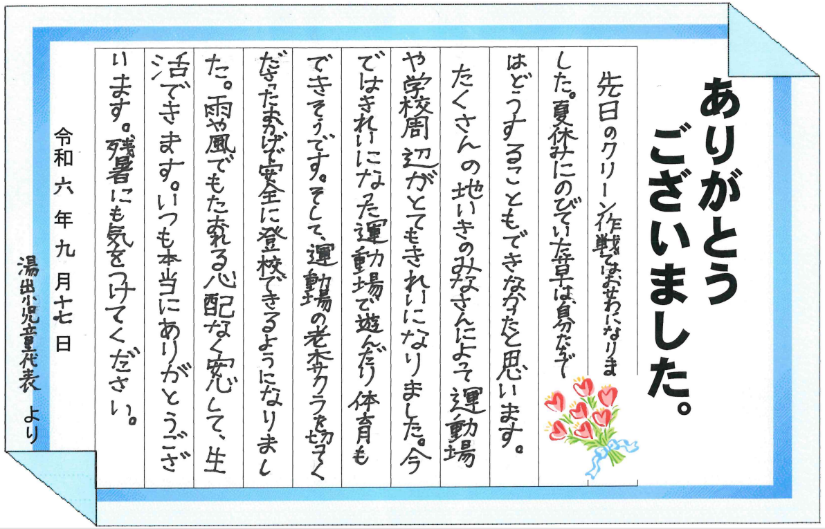 ありがとう
ございました。
先日のクリーン作戦ではおせわになりま
した。夏休みにのびていた草は、自分たちで
はどうすることもできなかったと思います。
たくさんの地いきのみなさんによって運動場
や学校周辺がとてもきれいになりました。今
ではきれいになった運動場で遊んだり体育も
できそうです。そして、運動場の老木サクラを切ってく
ださったおかげで安全に登校できるようになりまし
た。雨や風でもたおれる心配なく安心して、生
活できます。いつも本当にありがとうござ
います。残暑にも気をつけてください。
令和六年九月十七日
湯出小児童代表 より